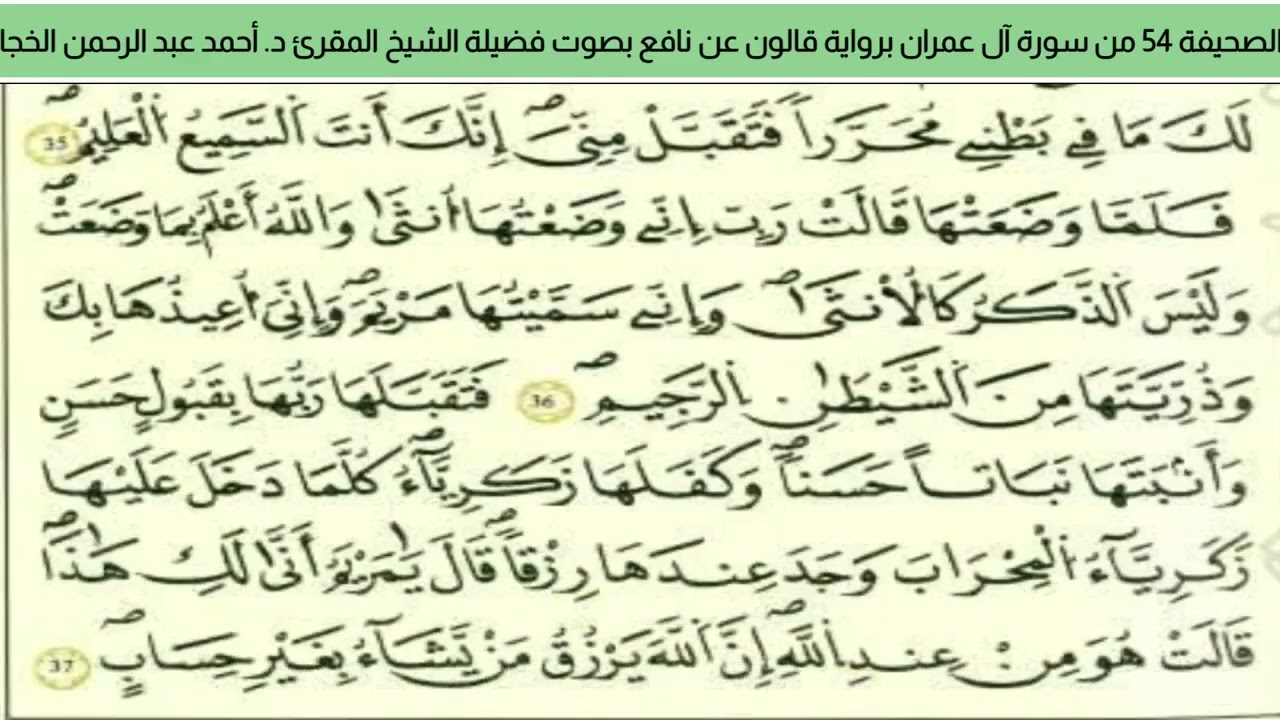 الصحيفة 54 من سورة آل عمران برواية قالون عن نافع بصوت فضيلة الشيخ المقرئ د. أحمد عبد الرحمن الخجا
لَكَ مَا فِي بَطْنِي مُحَرَّراً فَتَقَبَّلْ مِنِّيَ إِنَّكَ أَنتَ اَلسَّمِيعُ اُلْعَلِيمُ 35
فَلَمَّا وَضَعَتْهَا قَالَتْ رَبِّ إِنِّي وَضَعْتُهَا أُنثَىٰ وَاللَّهُ أَعْلَمُ بِمَا وَضَعَتْ
وَلَيْسَ اَلذَّكَرُ كَالْأُنثَىٰ وَإِنِّي سَمَّيْتُهَا مَرْيَمَ وَإِنِّيَ أُعِيذُهَا بِكَ
وَذُرِّيَّتَهَا مِنَ اَلشَّيْطَٰنِ اِلرَّجِيمِ 36 فَتَقَبَّلَهَا رَبُّهَا بِقَبُولٍ حَسَنٍ
وَأَنۢبَتَهَا نَبَاتاً حَسَناً وَكَفَلَهَا زَكَرِيَّآءُ كُلَّمَا دَخَلَ عَلَيْهَا
زَكَرِيَّآءُ اُلْمِحْرَابَ وَجَدَ عِندَهَا رِزْقاً قَالَ يَٰمَرْيَمُ أَنَّىٰ لَكِ هَٰذَا
قَالَتْ هُوَ مِنْ عِندِ اِللَّهِ إِنَّ اَللَّهَ يَرْزُقُ مَنْ يَّشَآءُ بِغَيْرِ حِسَابٍ 37